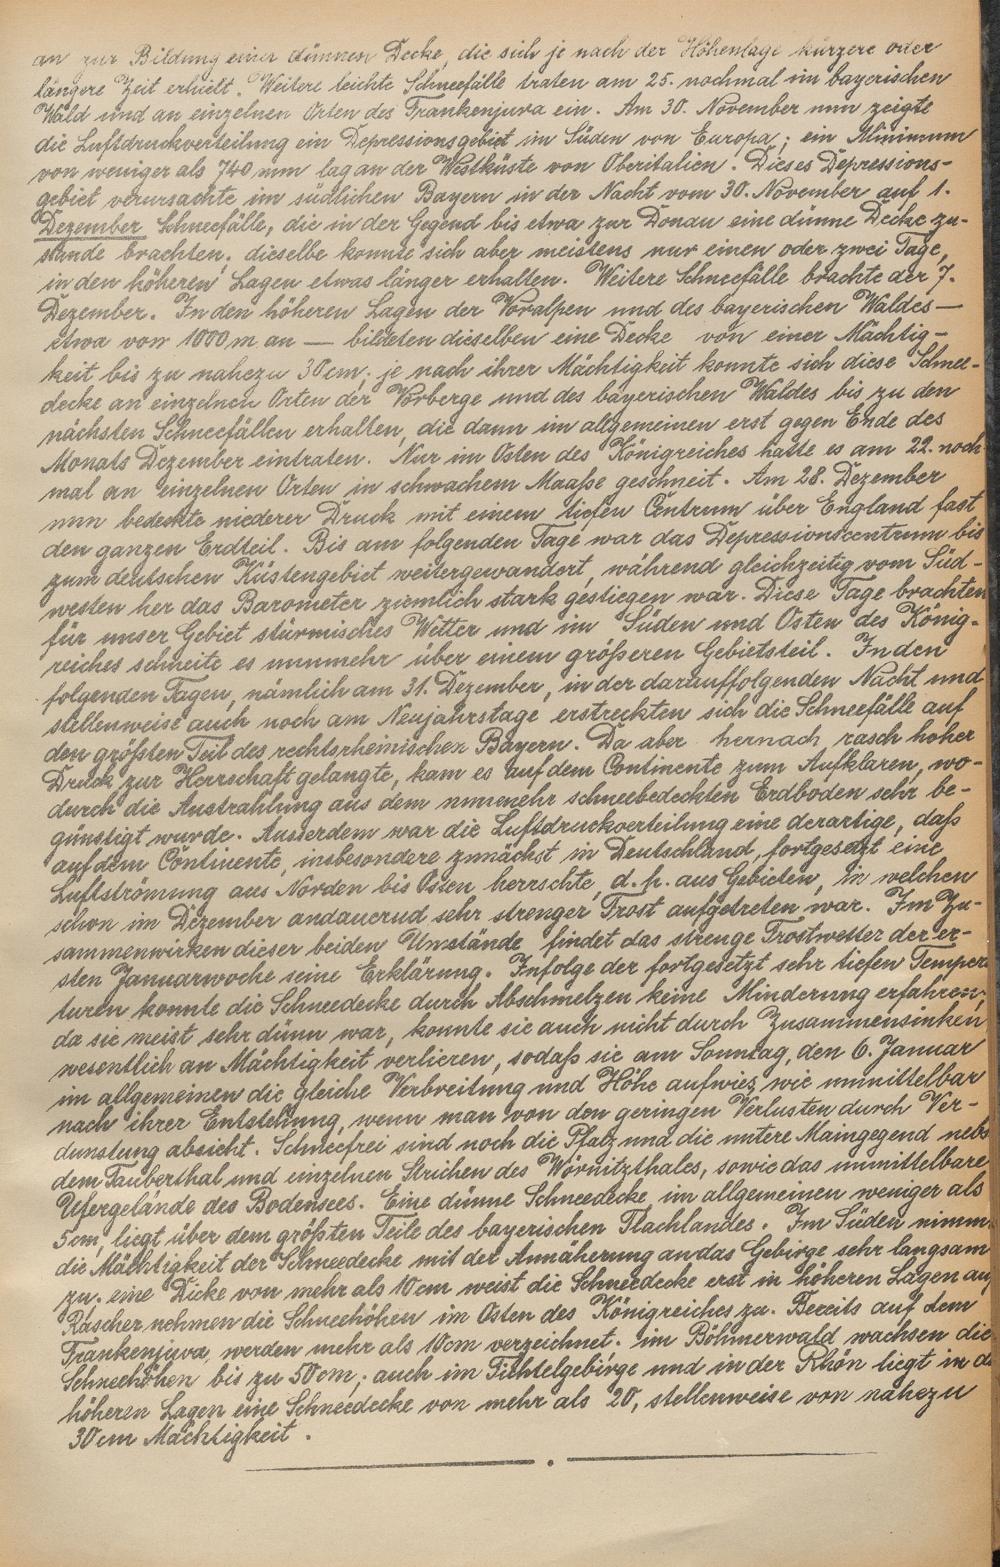 an zur Bildung einer dünnen Decke, die sich je nach der Höhenlage kürzere oder
längere Zeit erhielt. Weitere leichte Schneefälle traten am 25. nochmal im bayerischen
Wald und an einzelnen Orten des Frankenjura ein. Am 30. November nun zeigte
die Luftdruckverteilung ein Depressionsgebiet im Süden von Europa; ein Minimum
von weniger als 740 mm lag an der Westküste von Oberitalien. Dieses Depressions-
gebiet verursachte im südlichen Bayern in der Nacht vom 30. November auf 1.
Dezember Schneefälle, die in der Gegend bis etwa zur Donau eine dünne Decke zu-
stande brachten; dieselbe konnte sich aber meistens nur einen oder zwei Tage,
in den höheren Lagen etwas länger erhalten. Weitere Schneefälle brachte der 7.
Dezember. In den höheren Lagen der Voralpen und des bayerischen Waldes —
etwa von 1000 m an — bildeten dieselben eine Decke von einer Mächtig-
keit bis zu nahezu 30 cm; je nach ihrer Mächtigkeit konnte sich diese Schnee-
decke an einzelnen Orten der Vorberge und des bayerischen Waldes bis zu den
nächsten Schneefällen erhalten, die dann im allgemeinen erst gegen Ende des
Monats Dezember eintraten. Nur im Osten des Königreiches hatte es am 22. noch-
mal an einzelnen Orten in schwachem Maaße geschneit. Am 28. Dezember
nun bedeckte niederer Druck mit einem tiefen Centrum über England fast
den ganzen Erdteil. Bis am folgenden Tage war das Depressionscentrum bis
zum deutschen Küstengebiet weitergewandert, während gleichzeitig vom Süd-
westen her das Barometer ziemlich stark gestiegen war. Diese Tage brachten
für unser Gebiet stürmisches Wetter und im Süden und Osten des König-
reiches schneite es nunmehr über einem größeren Gebietsteil. In den
folgenden Tagen, nämlich am 31. Dezember, in der darauffolgenden Nacht und
stellenweise auch noch am Neujahrstage erstreckten sich die Schneefälle auf
den größten Teil des rechtsrheinischen Bayern. Da aber hernach rasch hoher
Druck zur Herrschaft gelangte, kam es auf dem Continente zum Aufklaren, wo-
durch die Ausstrahlung aus dem nunmehr schneebedeckten Erdboden sehr be-
günstigt wurde. Ausserdem war die Luftdruckverteilung eine derartige, daß
auf dem Continente, insbesondere zunächst in Deutschland, fortgesetzt eine
Luftströmung aus Norden bis Osten herrschte, d. h. aus Gebieten, in welchen
schon im Dezember andauernd sehr strenger Frost aufgetreten war. Im Zu-
sammenwirken dieser beiden Umstände findet das strenge Frostwetter der er-
sten Januarwoche seine Erklärung. Infolge der fortgesetzt sehr tiefen Tempera
turen konnte die Schneedecke durch Abschmelzen keine Minderung erfahren;
da sie meist sehr dünn war, konnte sie auch nicht durch Zusammensinken
wesentlich an Mächtigkeit verlieren, sodaß sie am Sonntag, den 6. Januar
im allgemeinen die gleiche Verbreitung und Höhe aufwies, wie unmittelbar
nach ihrer Entstehung, wenn man von den geringen Verlusten durch Ver-
dunstung absieht. Schneefrei sind noch die Pfalz und die untere Maingegend nebst
dem Tauberthal und einzelnen Strichen des Wörnitzthales, sowie das unmittelbare
Ufergelände des Bodensees. Eine dünne Schneedecke, im allgemeinen weniger als
5 cm, liegt über dem größten Teile des bayerischen Flachlandes. Im Süden nimmt
die Mächtigkeit der Schneedecke mit der Annäherung an das Gebirge sehr langsam
zu; eine Dicke von mehr als 10 cm weist die Schneedecke erst in höheren Lagen auf
Rascher nehmen die Schneehöhen im Osten des Königreiches zu. Bereits auf dem
Frankenjura werden mehr als 10 cm verzeichnet; im Böhmerwald wachsen die
Schneehöhen bis zu 50 cm; auch im Fichtelgebirge und in der Rhön liegt in de
höheren Lagen eine Schneedecke von mehr als 20, stellenweise von nahezu
30 cm Mächtigkeit.